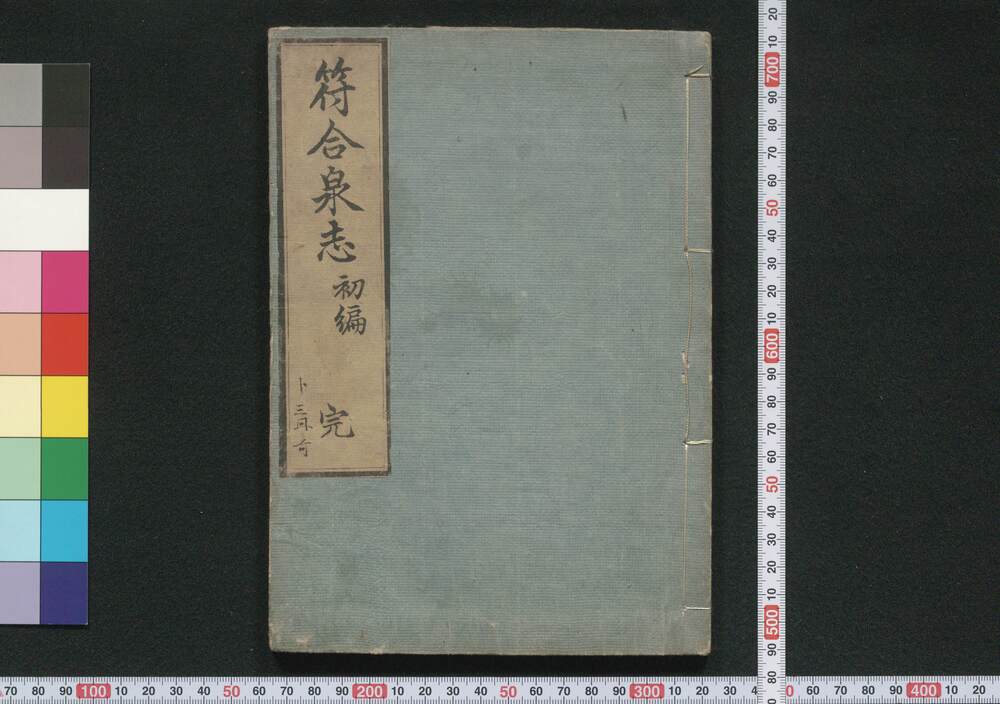 符合泉志 初編 完
70 80 90 100 10 20 30 40 50 60 70 80 90 200 10 20 30 40 50 60 70 80 90 300 10 20 30 4 0 60 70 80 90 400 10 20
20 10 700 90 80 70 60 50 40 30 20 10 600 90 80 70 60 50 40 30 20 10 500 90 80